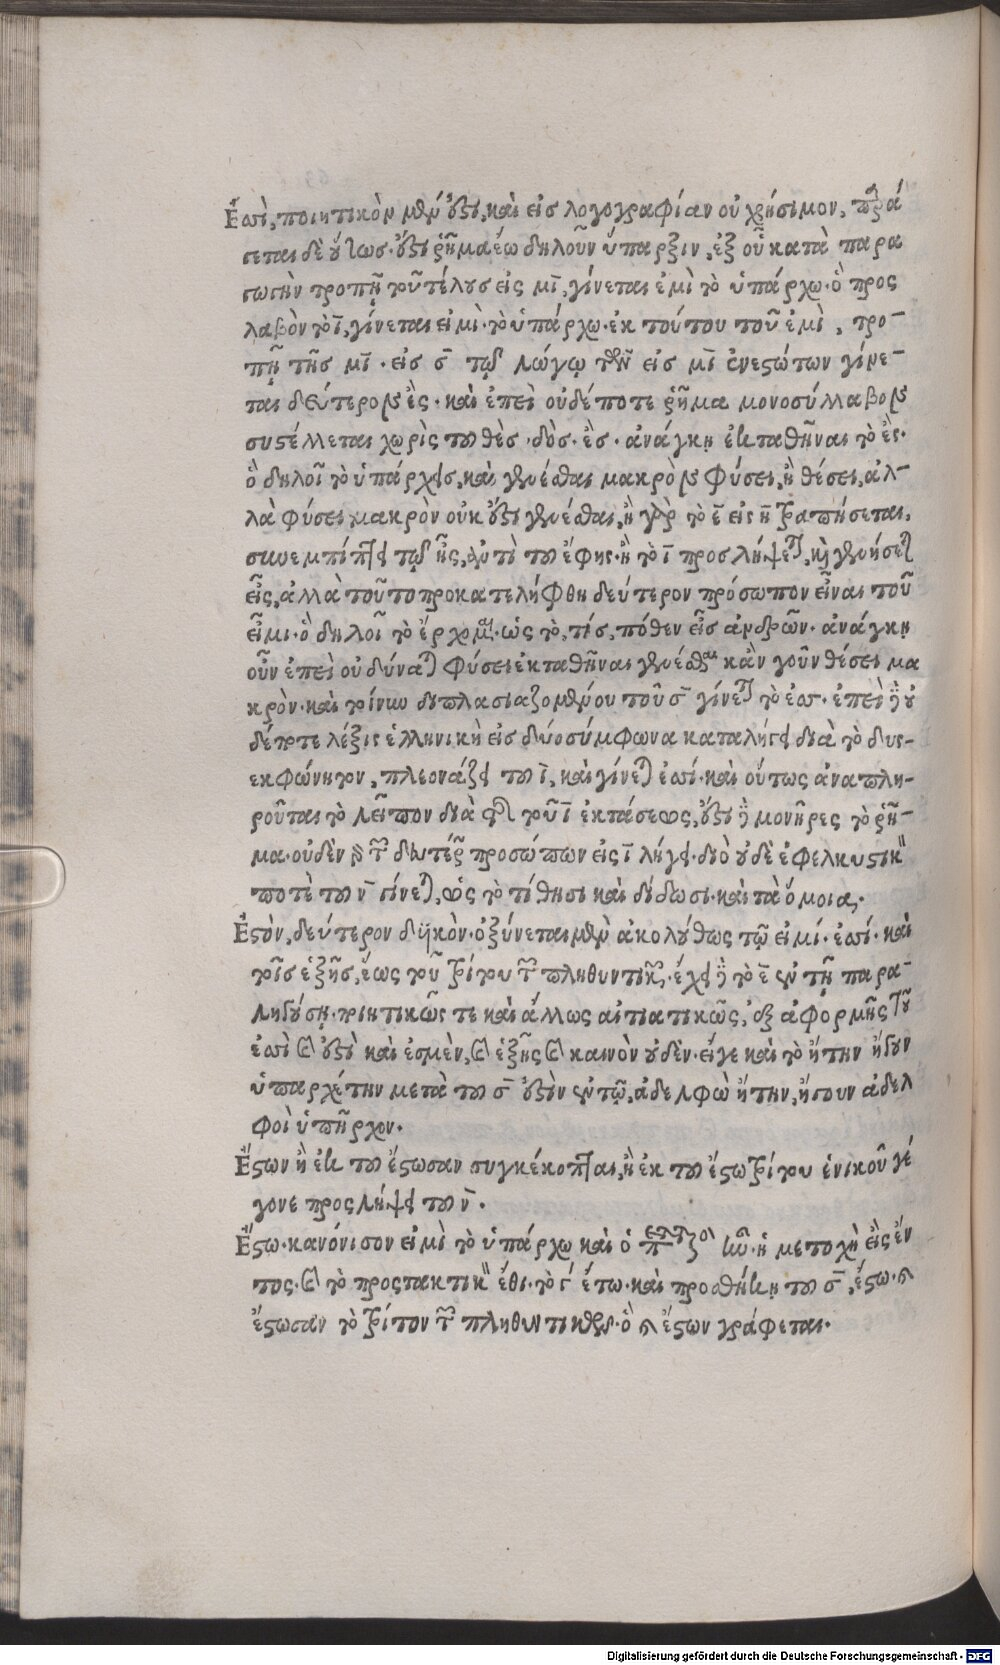 Ἐσσὶ, ποιητικὸν μὲν ἐστὶ, καὶ εἰς λογογραφίαν οὐ χρήσιμον, παρά
γεται δὲ οὕτως· ἐστὶ ῥῆμα ἕω δηλοῦν ὕπαρξιν, ἐξ οὗ κατὰ παρα
γωγὴν τροπῇ τοῦ τέλους εἰς μῑ, γίνεται ἐμὶ τὸ ὑπάρχω· ὃ προς
λαβὸν τὸ ῑ, γίνεται εἰμὶ· τὸ ὑπάρχω· ἐκ τούτου τοῦ ἐμὶ, τρο-
πῇ τῆς μῑ· εἰς σ̄ τῷ λόγῳ τῶν εἰς μῑ ἐνεστώτων γίνε-
ται δεύτερον ἐς· καὶ ἐπεὶ οὐδέποτε ῥῆμα μονοσύλλαβον
συστέλλεται χωρὶς τοῦ θὲς· δὸς· ἒς· ἀνάγκη ἐκταθῆναι τὸ ἐς·
ὃ δηλοῖ τὸ ὑπάρχεις, καὶ γενέσθαι μακρὸν φύσει, ἢ θέσει, ἀλ-
λὰ φύσει μακρὸν οὐκ ἐστὶ γενέσθαι, ἢ γὰρ τὸ ε̄ εἰς η̄ τραπήσεται,
συνεμπίπτει τῷ ἦς, ἀντὶ τοῦ ἔφης· ἢ τὸ ῑ προσλήψεται, καὶ γενήσεται
εἶς, ἀλλὰ τοῦτο προκατελήφθη δεύτερον πρόσωπον εἶναι τοῦ
εἶμι· ὃ δηλοῖ τὸ ἔρχομαι· ὡς τὸ, τίς, πόθεν εἶς ἀνδρῶν· ἀνάγκη
οὖν ἐπεὶ οὐ δύναται φύσει ἐκταθῆναι γενέσθαι κἂν γοῦν θέσει μα
κρὸν· καὶ τοίνυν διπλασιαζομένου τοῦ σ̄ γίνεται τὸ ἐσς· ἐπεὶ δὲ οὐ
δέποτε λέξις ἑλληνικὴ εἰς δύο σύμφωνα καταλήγει διὰ τὸ δυς-
εκφώνητον, πλεονάζει τοῦ ῑ, καὶ γίνεται ἐσσί· καὶ οὕτως ἀναπλη-
ροῦται τὸ λεῖπον διὰ τῆς τοῦ ῑ ἐκτάσεως, ἐστὶ δὲ μονῆρες τὸ ῥῆ-
μα· οὐδὲν γὰρ τῶν δευτέρων προσώπων εἰς ῑ λήγει· διὸ οὐδὲ ἐφελκυστικὸν
ποτὲ τοῦ ν̄ γίνεται, ὡς τὸ τίθησι καὶ δίδωσι· καὶ τὰ ὅμοια.
Ἐστὸν, δεύτερον δυϊκὸν· ὀξύνεται μὲν ἀκολούθως τῷ εἰμί· ἐσσί· καὶ
τοῖς ἑξῆς, ἕως τοῦ τρίτου τῶν πληθυντικῶν· ἔχει δὲ τὸ ε̄ ἐν τῇ παρα-
ληγούσῃ· ποιητικῶς τε καὶ ἄλλως αἰτιατικῶς, ἐξ ἀφορμῆς τοῦ
ἐσσὶ καὶ ἐστὶ καὶ ἐσμὲν, καὶ ἑξῆς καὶ καινὸν οὐδὲν· εἴγε καὶ τὸ ἤτην ἤγουν
ὑπαρχέτην μετὰ τοῦ σ̄ ἐστὶν ἐν τῷ, ἀδελφὼ ἤτην, ἤγουν ἀδελ
φοὶ ὑπῆρχον.
Ἔστων ἢ ἐκ τοῦ ἔστωσαν συγκέκοπται, ἢ ἐκ τοῦ ἔστω τρίτου ἑνικοῦ γέ
γονε προςλήψει τοῦ ν̄.
Ἔστω· κανόνισον εἰμὶ τὸ ὑπάρχω καὶ ὁ ὢν· ἡ μετοχὴ εἲς ἔν
τος· καὶ τὸ προςτακτικὸν ἔθι· τὸ γ΄ ἔτω· καὶ προσθήκῃ τοῦ σ̄, ἔστω· καὶ
ἔστωσαν τὸ τρίτον τῶν πληθυντικῶν· ὃ καὶ ἔστων γράφεται.
Digitalisierung gefördert durch die Deutsche Forschungsgemeinschaft - DFG